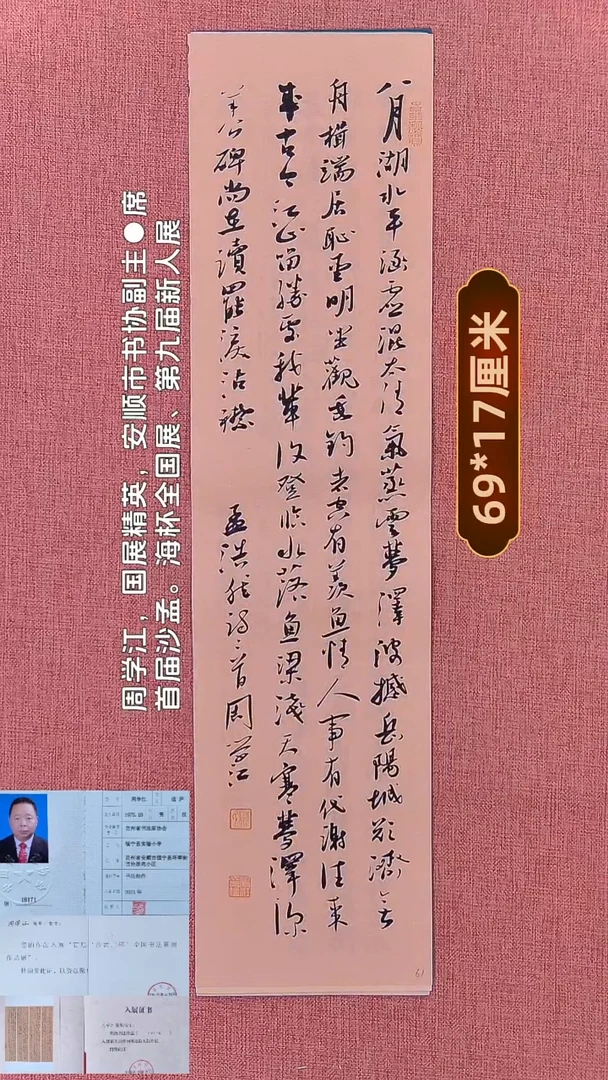 八月湖水平涵虚混太清气蒸云梦泽波撼岳阳城欲济无
舟楫端居耻圣明坐观垂钓者空有羡鱼情人事有代谢往来
成古今江山留胜迹我辈复登临水落鱼梁浅天寒梦泽深
羊公碑尚在读罢泪沾襟
孟浩然诗二首周学江
61
周学江，国展精英，安顺市书协副主●席
首届沙孟。海杯全国展、第九届新人展
69*17厘米
周学江
18171
入展证书